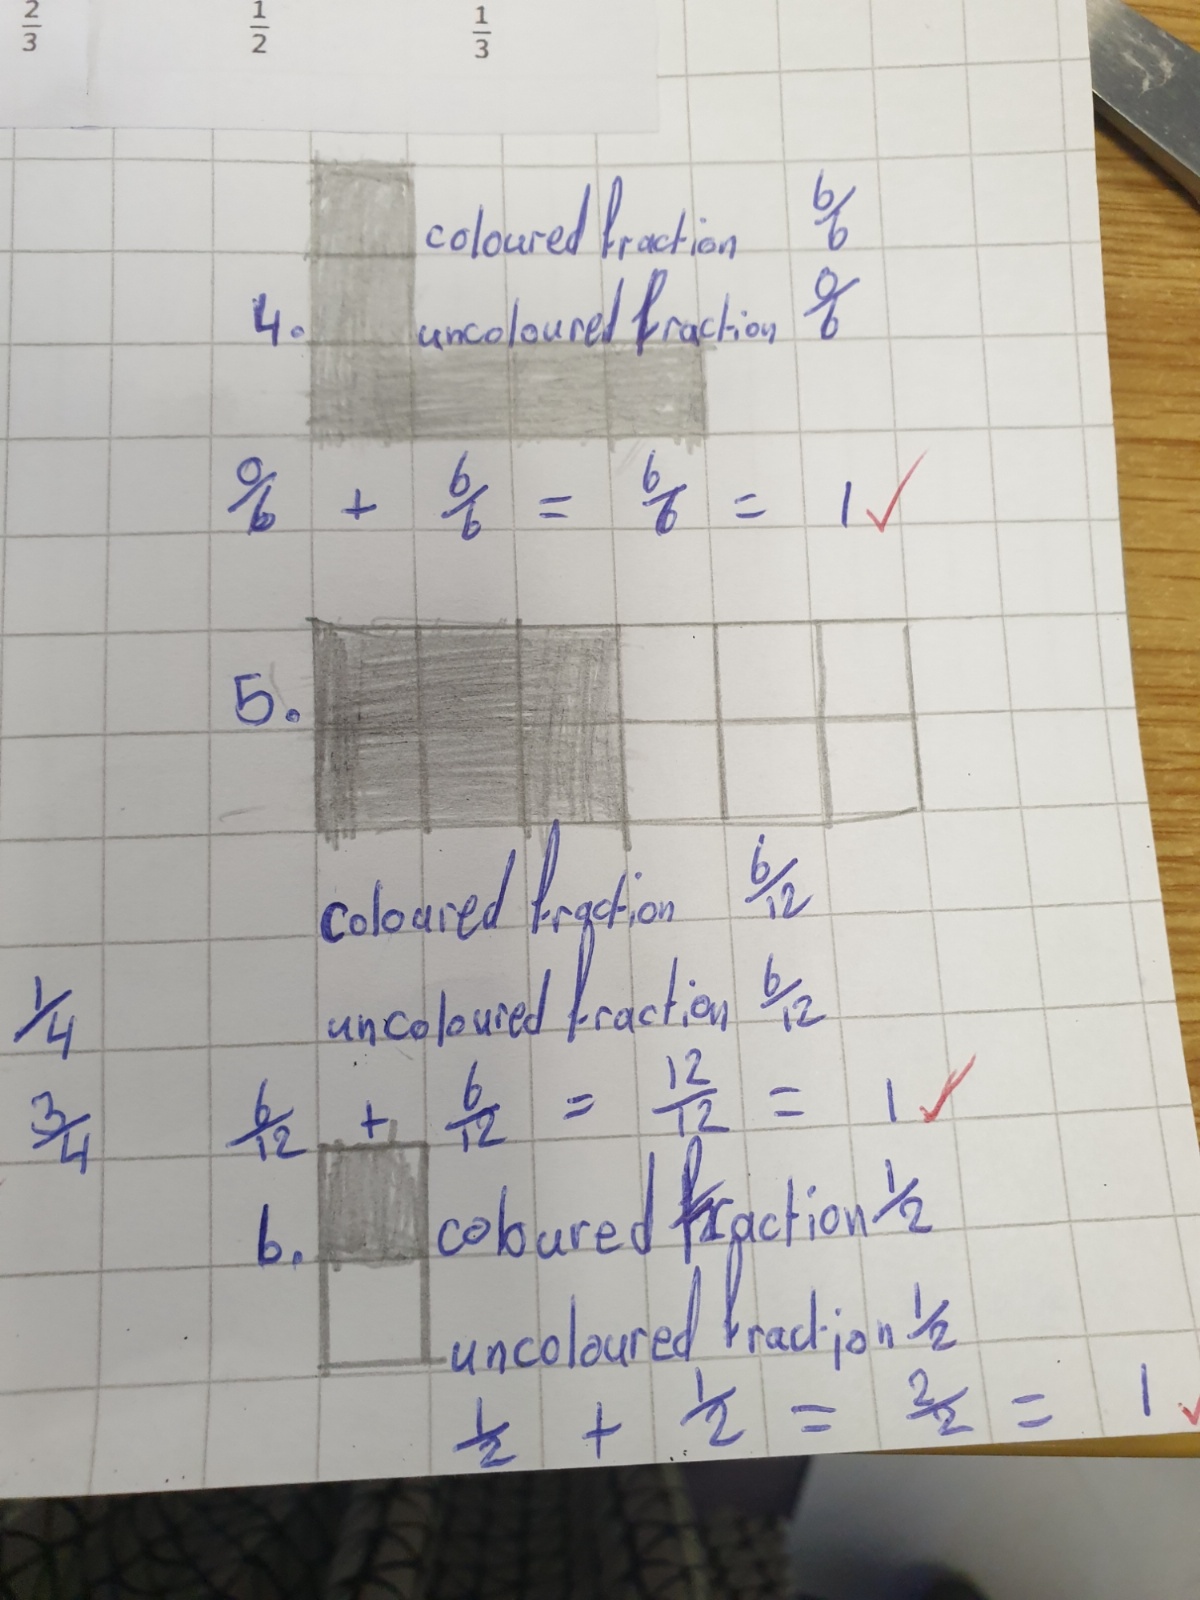 2/3 1/2 1/3
coloured fraction 6/6
4. uncoloured fraction 0/6
0/6 + 6/6 = 6/6 = 1 ✓
5.
coloured fraction 6/12
1/4 uncoloured fraction 6/12
3/4 6/12 + 6/12 = 12/12 = 1 ✓
6. coloured fraction 1/2
uncoloured fraction 1/2
1/2 + 1/2 = 2/2 = 1 ✓